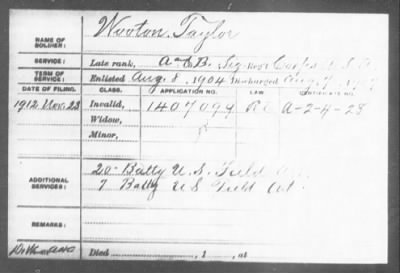 NAME OF SOLDIER: Wooton, Taylor
SERVICE: Late rank, A and B, Sig Corps U.S.A
TERM OF SERVICE: Enlisted Aug. 8, 1904 Discharged Aug. 7,
DATE OF FILING. CLASS. APPLICATION NO. LAW CERTIFICATE NO.
1912 Nov. 23 Invalid, 1407094
Widow,
Minor,
ADDITIONAL SERVICES: 20" Batty U.S. Field
7 Batty US Field Art.
REMARKS:
Died , 1 , at